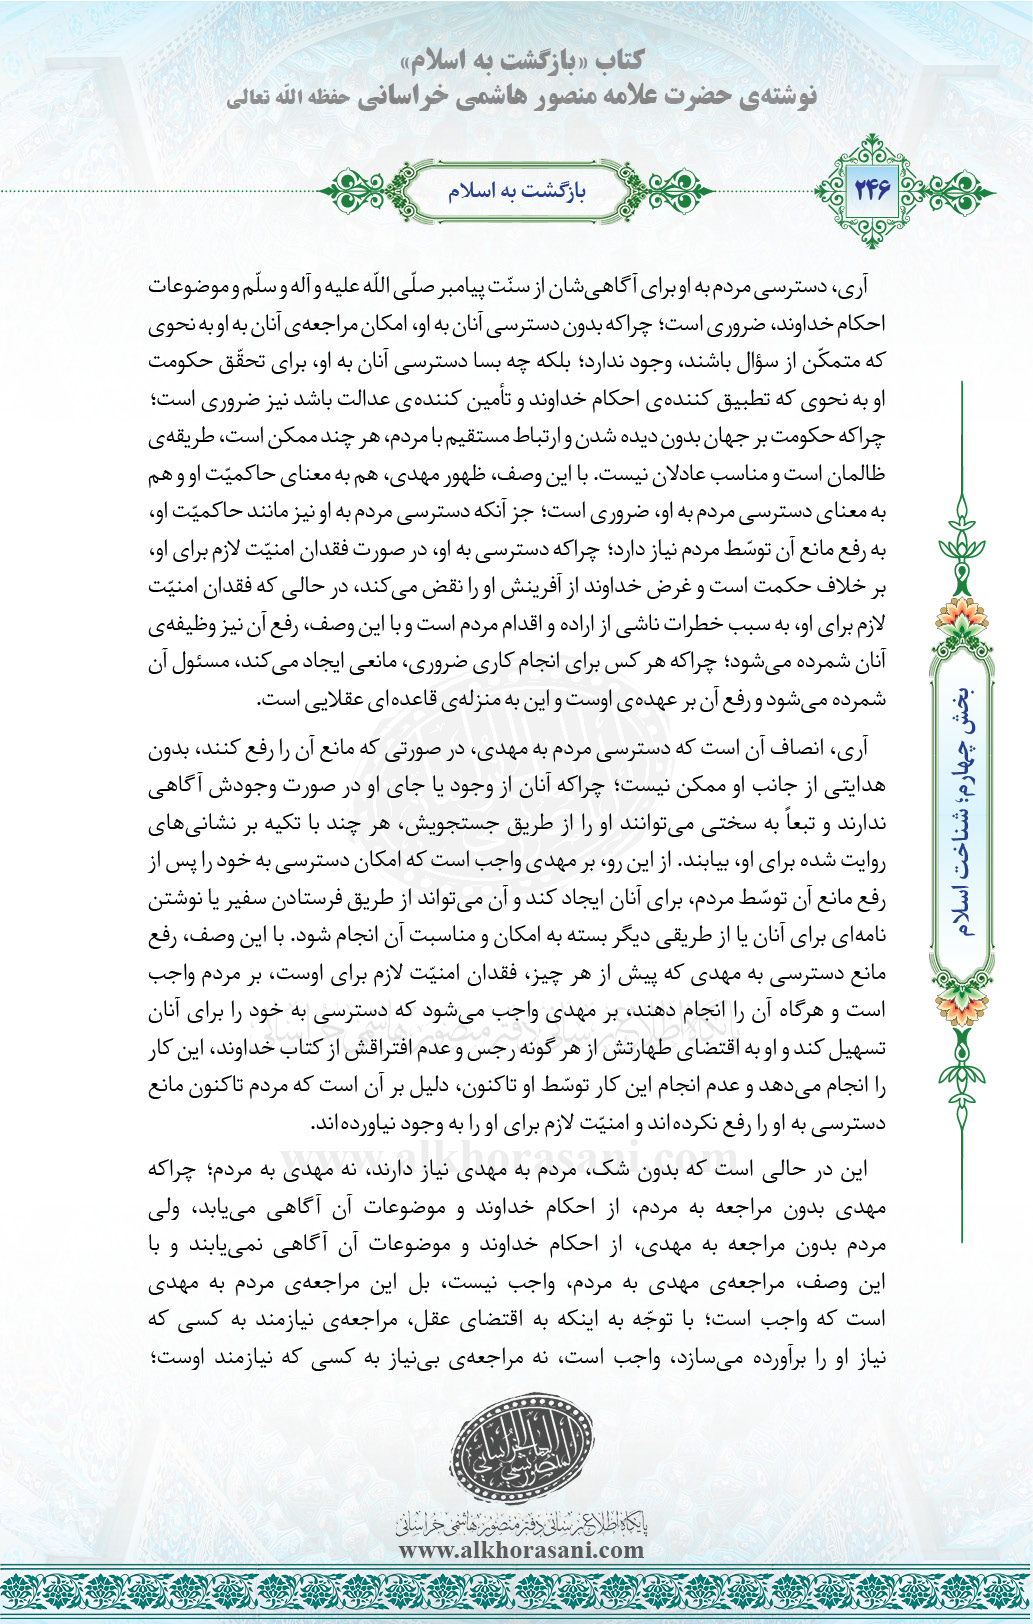 کتاب «بازگشت به اسلام»
نوشته‌ی حضرت علامه منصور هاشمی خراسانی حفظه الله تعالی
۲۴۶
بازگشت به اسلام
آری، دسترسی مردم به او برای آگاهی‌شان از سنّت پیامبر صلّی اللّه علیه و آله و سلّم و موضوعات
احکام خداوند، ضروری است؛ چراکه بدون دسترسی آنان به او، امکان مراجعه‌ی آنان به او به نحوی
که متمکّن از سؤال باشند، وجود ندارد؛ بلکه چه بسا دسترسی آنان به او، برای تحقّق حکومت
او به نحوی که تطبیق کننده‌ی احکام خداوند و تأمین کننده‌ی عدالت باشد نیز ضروری است؛
چراکه حکومت بر جهان بدون دیده شدن و ارتباط مستقیم با مردم، هر چند ممکن است، طریقه‌ی
ظالمان است و مناسب عادلان نیست. با این وصف، ظهور مهدی، هم به معنای حاکمیّت او و هم
به معنای دسترسی مردم به او، ضروری است؛ جز آنکه دسترسی مردم به او نیز مانند حاکمیّت او،
به رفع مانع آن توسّط مردم نیاز دارد؛ چراکه دسترسی به او، در صورت فقدان امنیّت لازم برای او،
بر خلاف حکمت است و غرض خداوند از آفرینش او را نقض می‌کند، در حالی که فقدان امنیّت
لازم برای او، به سبب خطرات ناشی از اراده و اقدام مردم است و با این وصف، رفع آن نیز وظیفه‌ی
آنان شمرده می‌شود؛ چراکه هر کس برای انجام کاری ضروری، مانعی ایجاد می‌کند، مسئول آن
شمرده می‌شود و رفع آن بر عهده‌ی اوست و این به منزله‌ی قاعده‌ای عقلایی است.
آری، انصاف آن است که دسترسی مردم به مهدی، در صورتی که مانع آن را رفع کنند، بدون
هدایتی از جانب او ممکن نیست؛ چراکه آنان از وجود یا جای او در صورت وجودش آگاهی
ندارند و تبعاً به سختی می‌توانند او را از طریق جستجویش، هر چند با تکیه بر نشانی‌های
روایت شده برای او، بیابند. از این رو، بر مهدی واجب است که امکان دسترسی به خود را پس از
رفع مانع آن توسّط مردم، برای آنان ایجاد کند و آن می‌تواند از طریق فرستادن سفیر یا نوشتن
نامه‌ای برای آنان یا از طریقی دیگر بسته به امکان و مناسبت آن انجام شود. با این وصف، رفع
مانع دسترسی به مهدی که پیش از هر چیز، فقدان امنیّت لازم برای اوست، بر مردم واجب
است و هرگاه آن را انجام دهند، بر مهدی واجب می‌شود که دسترسی به خود را برای آنان
تسهیل کند و او به اقتضای طهارتش از هر گونه رجس و عدم افتراقش از کتاب خداوند، این کار
را انجام می‌دهد و عدم انجام این کار توسّط او تاکنون، دلیل بر آن است که مردم تاکنون مانع
دسترسی به او را رفع نکرده‌اند و امنیّت لازم برای او را به وجود نیاورده‌اند.
این در حالی است که بدون شک، مردم به مهدی نیاز دارند، نه مهدی به مردم؛ چراکه
مهدی بدون مراجعه به مردم، از احکام خداوند و موضوعات آن آگاهی می‌یابد، ولی
مردم بدون مراجعه به مهدی، از احکام خداوند و موضوعات آن آگاهی نمی‌یابند و با
این وصف، مراجعه‌ی مهدی به مردم، واجب نیست، بل این مراجعه‌ی مردم به مهدی
است که واجب است؛ با توجّه به اینکه به اقتضای عقل، مراجعه‌ی نیازمند به کسی که
نیاز او را برآورده می‌سازد، واجب است، نه مراجعه‌ی بی‌نیاز به کسی که نیازمند اوست؛
بخش چهارم؛ شناخت اسلام
پایگاه اطلاع‌رسانی دفتر منصور هاشمی خراسانی
www.alkhorasani.com
المنصور الهاشمی الخراسانی
پایگاه اطلاع‌رسانی دفتر منصور هاشمی خراسانی
www.alkhorasani.com